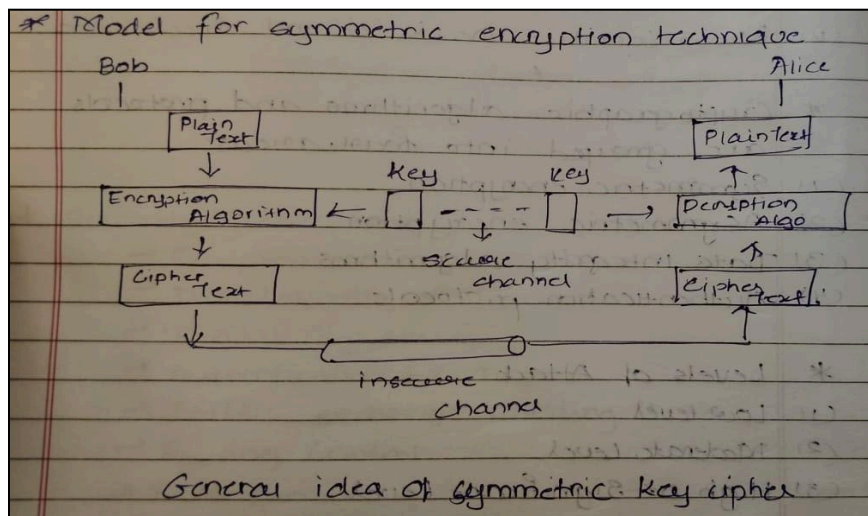 * Model for symmetric encryption technique
Bob Alice
Plain Text
PlainText
Key Key
Encryption Algorithm
Decryption Algo
secure channel
Cipher Text
Cipher Text
insecure channel
General idea of symmetric key cipher